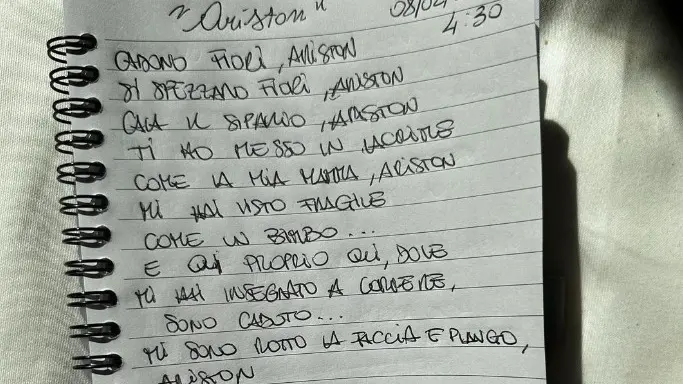 "Ariston"
08/04
4:30
CADONO FIORI, ARISTON
SI SPEZZANO FIORI, ARISTON
CALA IL SIPARIO, ARISTON
TI HO MESSO IN LACRIME
COME LA MIA MAMMA, ARISTON
MI HAI VISTO FRAGILE
COME UN BIMBO...
E QUI PROPRIO QUI, DOVE
MI HAI INSEGNATO A CORRERE,
SONO CADUTO...
MI SONO ROTTO LA FACCIA E PIANGO,
ARISTON